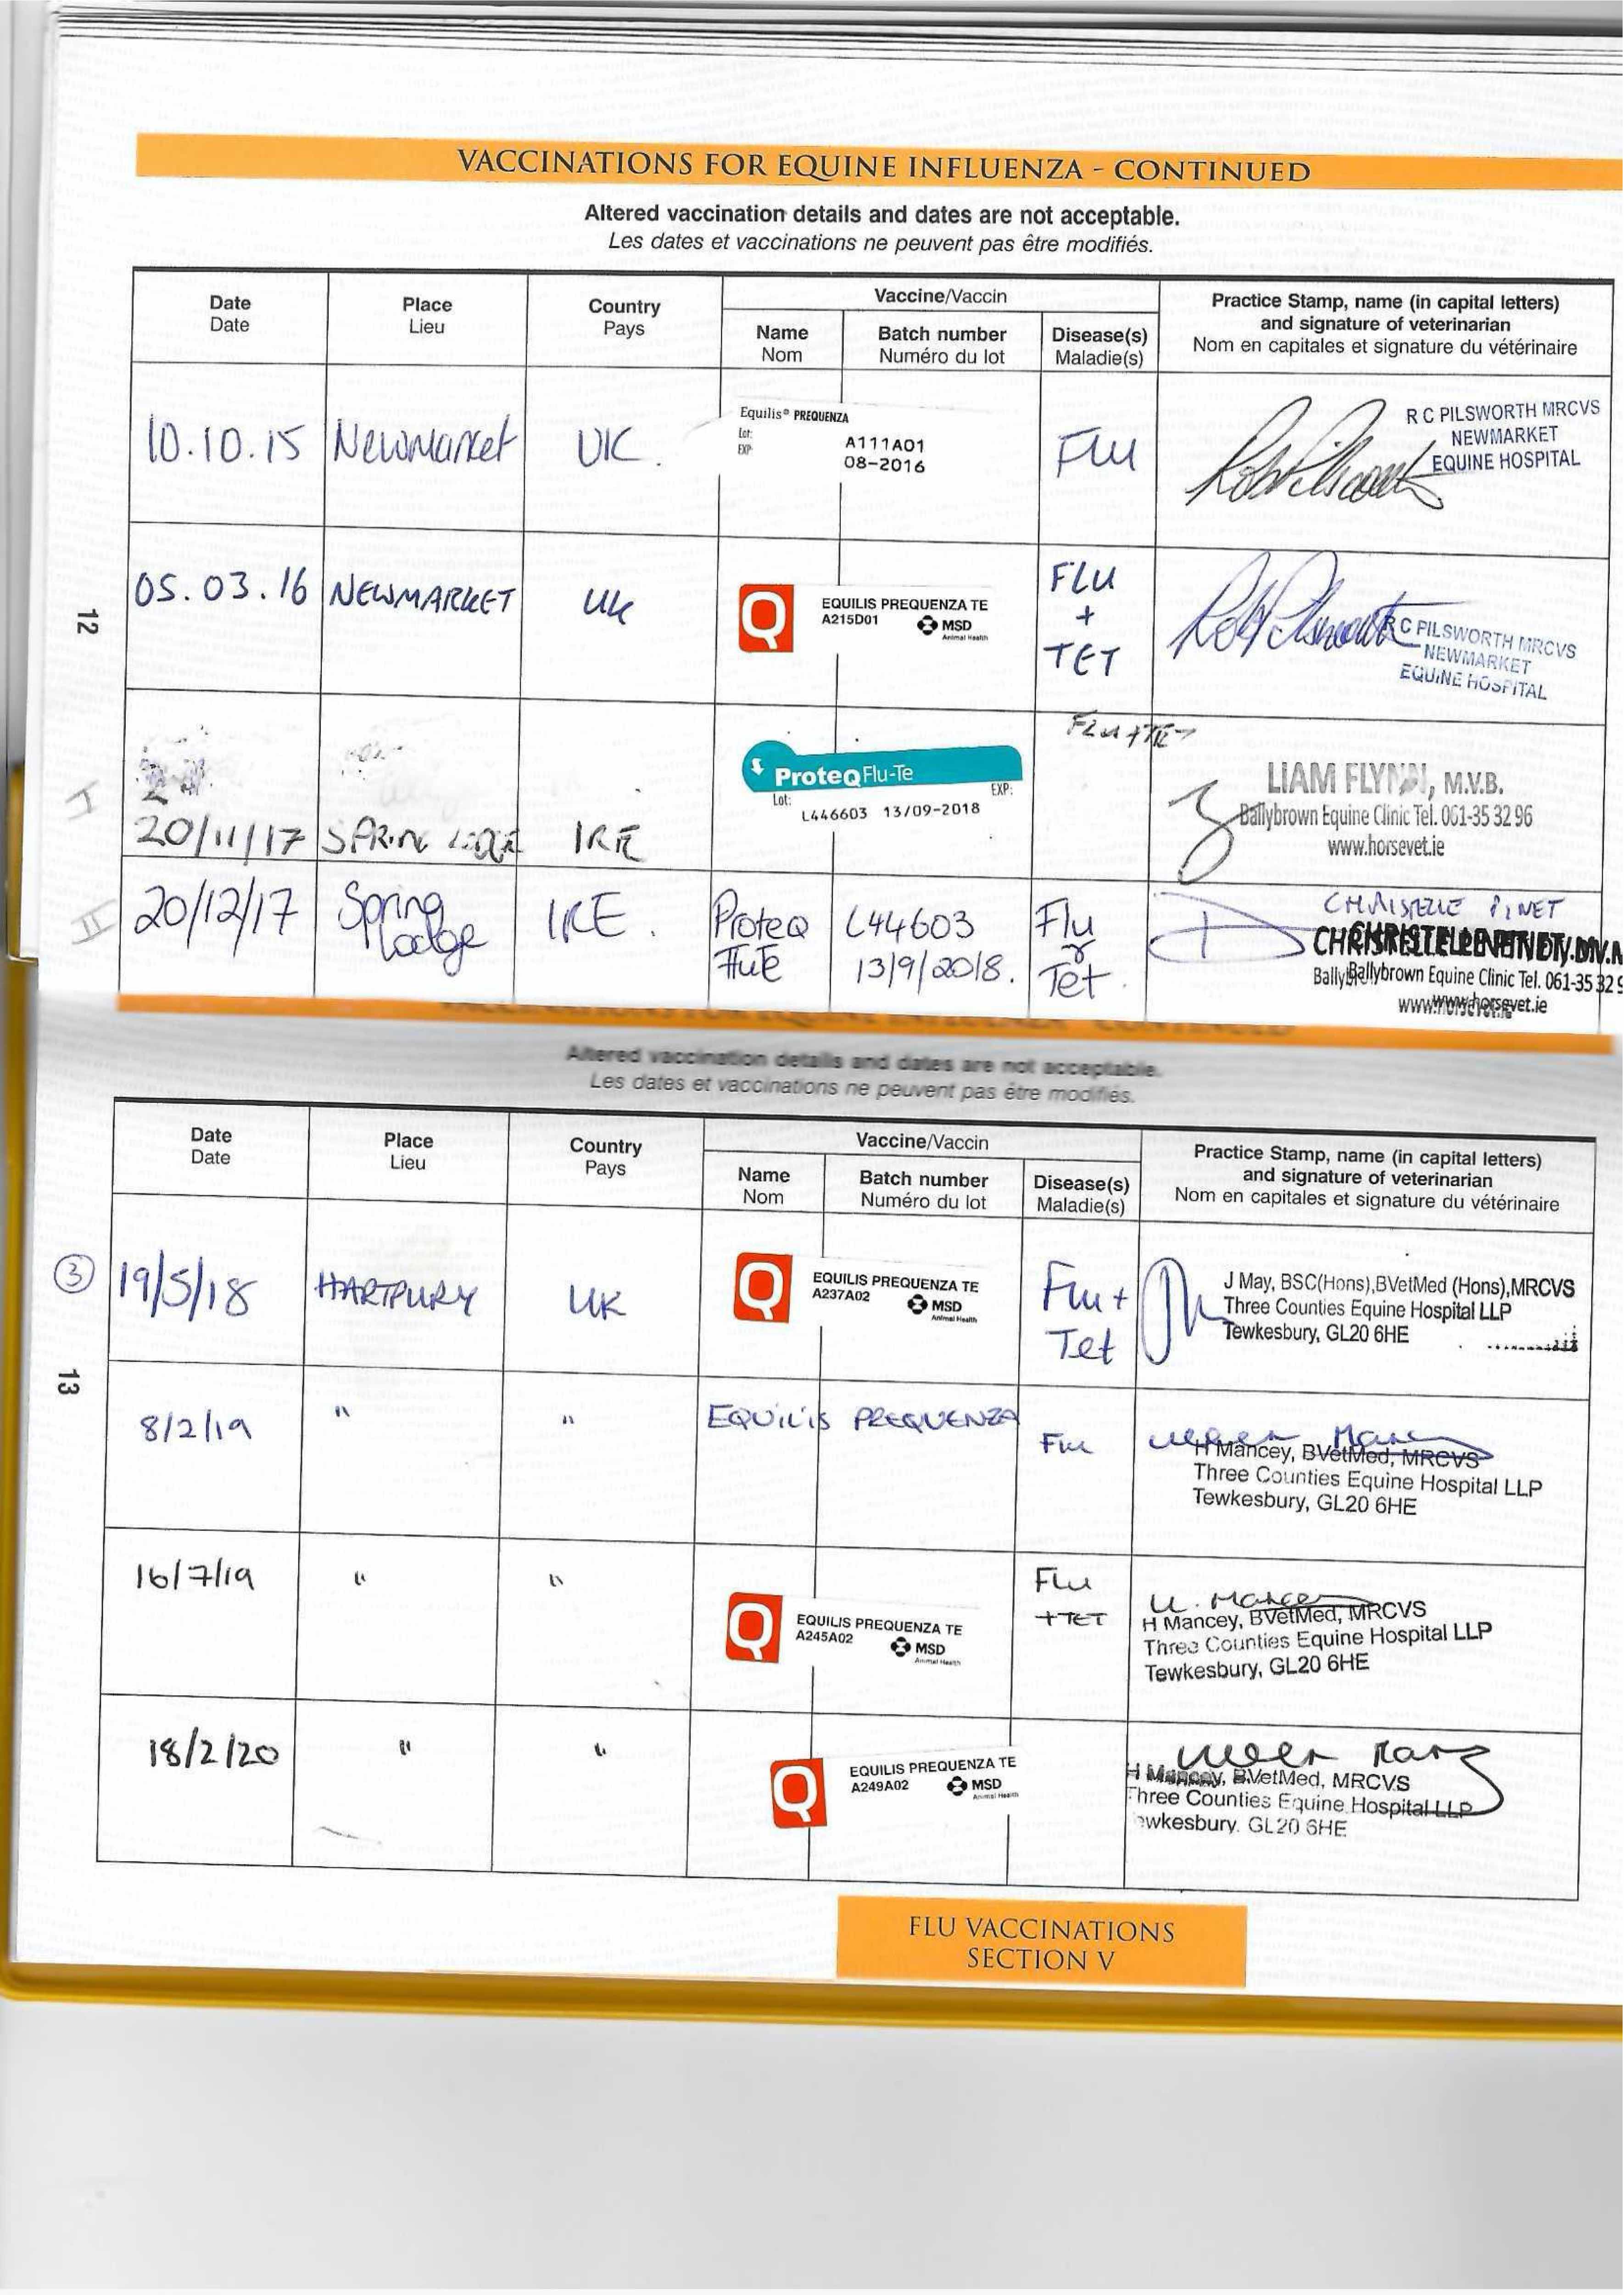 VACCINATIONS FOR EQUINE INFLUENZA - CONTINUED
Altered vaccination details and dates are not acceptable.
Les dates et vaccinations ne peuvent pas être modifiés.
Date
Date
Place
Lieu
Country
Pays
Vaccine/Vaccin
Name
Nom
Batch number
Numéro du lot
Disease(s)
Maladie(s)
Practice Stamp, name (in capital letters)
and signature of veterinarian
Nom en capitales et signature du vétérinaire
10.10.15 Newmarket UK.
Equilis® PREQUENZA
Lot: A111A01
EXP: 08-2016
Flu
R C PILSWORTH MRCVS
NEWMARKET
EQUINE HOSPITAL
12
05.03.16 NEWMARKET UK
Q
EQUILIS PREQUENZA TE
A215D01 MSD
Animal Health
FLU
+
TET
R C PILSWORTH MRCVS
NEWMARKET
EQUINE HOSPITAL
I
20/11/17 SPRING LODGE IRE
ProteqFlu-Te
Lot: EXP:
L446603 13/09-2018
FLU+TET
LIAM FLYNN, M.V.B.
Ballybrown Equine Clinic Tel. 061-35 32 96
www.horsevet.ie
II
20/12/17 Spring Lodge IRE.
Proteq FluTe
L44603
13/9/2018.
Flu
&
Tet.
CHRISTELLE PINET
Ballybrown Equine Clinic Tel. 061-35 32 9
www.horsevet.ie
Altered vaccination details and dates are not acceptable.
Les dates et vaccinations ne peuvent pas être modifiés.
Date
Date
Place
Lieu
Country
Pays
Vaccine/Vaccin
Name
Nom
Batch number
Numéro du lot
Disease(s)
Maladie(s)
Practice Stamp, name (in capital letters)
and signature of veterinarian
Nom en capitales et signature du vétérinaire
3
19/5/18 HARTPURY UK
Q
EQUILIS PREQUENZA TE
A237A02 MSD
Animal Health
Flu +
Tet
J May, BSC(Hons),BVetMed (Hons),MRCVS
Three Counties Equine Hospital LLP
Tewkesbury, GL20 6HE
13
8/2/19 " " EQUILIS PREQUENZA Flu
H Mancey, BVetMed, MRCVS
Three Counties Equine Hospital LLP
Tewkesbury, GL20 6HE
16/7/19 " "
Q
EQUILIS PREQUENZA TE
A245A02 MSD
Animal Health
Flu
+TET
H. Mancey
H Mancey, BVetMed, MRCVS
Three Counties Equine Hospital LLP
Tewkesbury, GL20 6HE
18/2/20 " "
Q
EQUILIS PREQUENZA TE
A249A02 MSD
Animal Health
H Mancey, BVetMed, MRCVS
Three Counties Equine Hospital LLP
ewkesbury. GL20 6HE
FLU VACCINATIONS
SECTION V